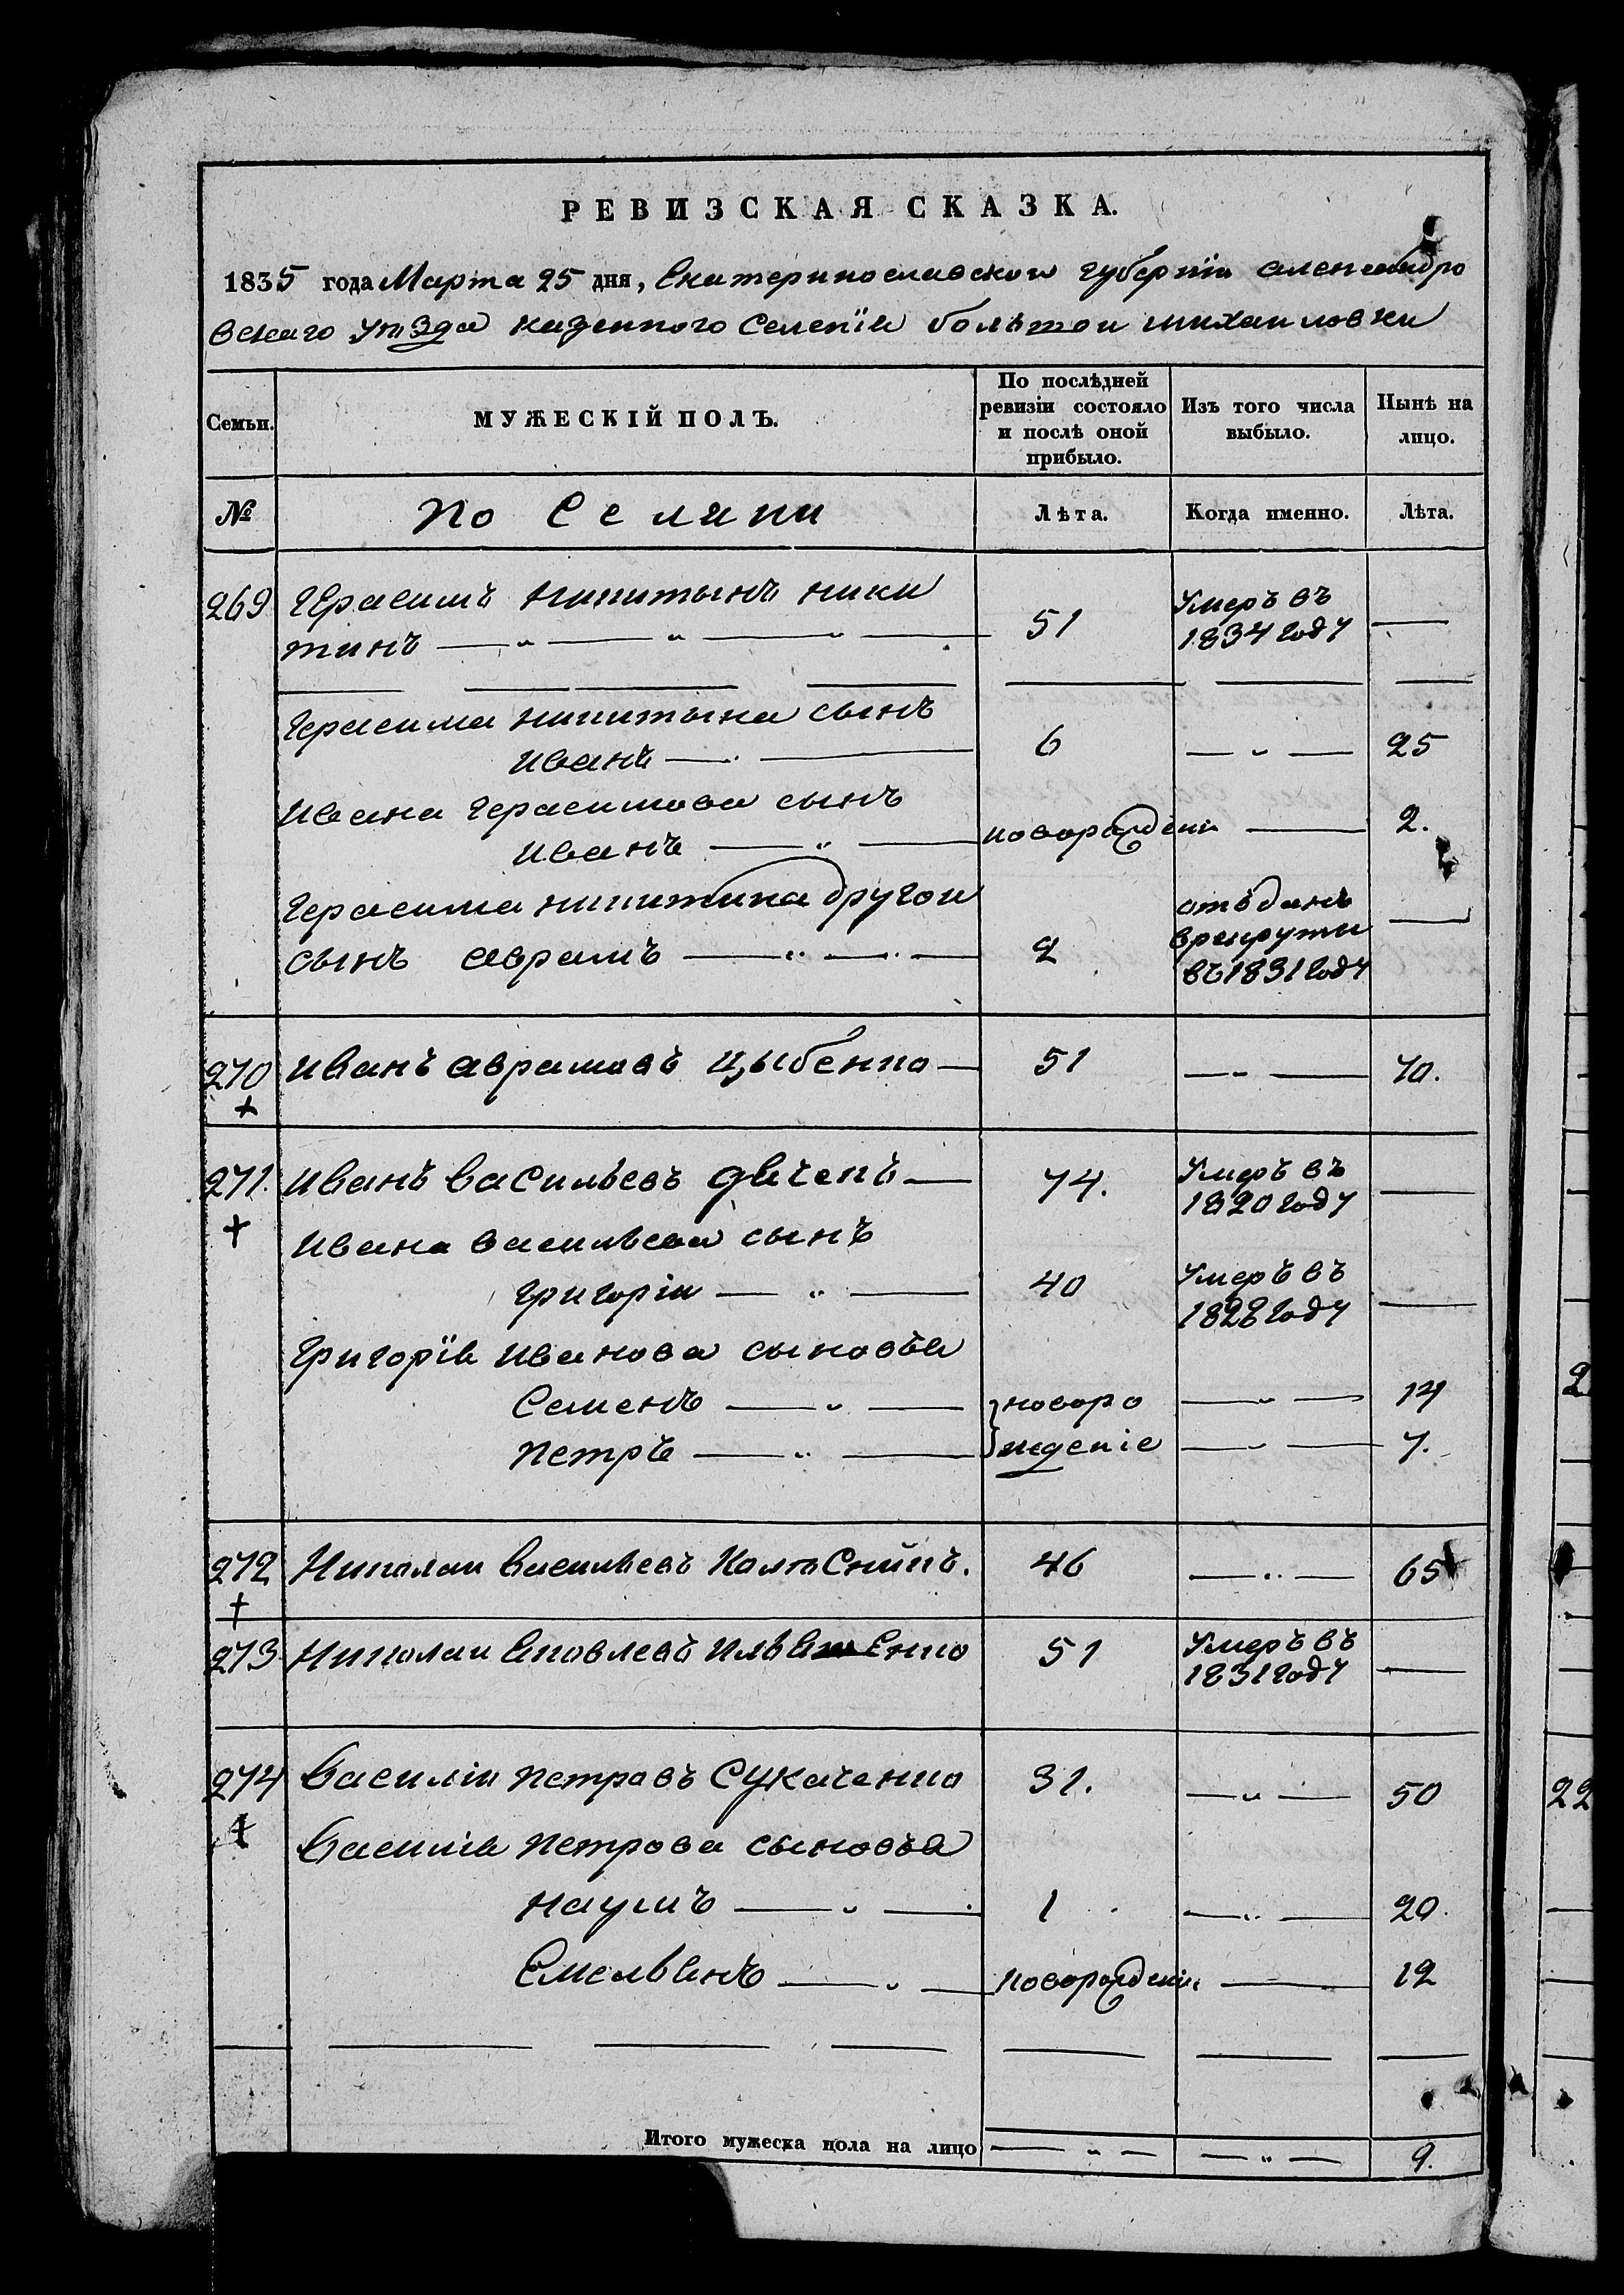 РЕВИЗСКАЯ СКАЗКА.
1835 года Марта 25 дня, Екатеринославской губернїи александро
вскаго уѣзда казенного Селенїя большои михаиловки
Семьи.
МУЖЕСКІЙ ПОЛЪ.
По послѣдней
ревизіи состояло
и послѣ оной
прибыло.
Изъ того числа
выбыло.
Нынѣ на
лицо.
№
По Селяни
Лѣта.
Когда именно.
Лѣта.
269 Герасимъ никитынъ ники
тинъ — „ — „ — „ — 51 Умеръ въ 1834 году —
Герасима никитына сынъ
Иванъ — 6 — „ — 25
Ивана Герасимова сынъ
Иванъ — „ — новорожденн — 2.
Герасима никитина другои
сынъ аврамъ — „ — 2 отъданъ врекруты въ 1831 году —
270 Иванъ аврамовъ цыбенко — 51 — „ — 70.
+
271. Иванъ васильевъ — 74. Умеръ въ 1820 году —
+
Ивана васильева сынъ
Григоріи — „ — 40 Умеръ въ 1828 году —
Григорїя Иванова сыновья
Семенъ — „ — новоро — „ — 14
Петръ — „ — жденіе — „ — 7.
272 Николаи васильевъ Колѣсникъ. 46 — „ — 65
+
273 Николаи яковлевъ 51 Умеръ въ 1831 году —
274 Василіи петровъ Сукаченко 31. — „ — 50
+
Василія петрова сыновья
наумъ — „ — 1 — „ — 20.
Емельянъ — „ — новорожденн — 12
Итого мужеска пола на лицо — „ — — „ — 9.
2
22